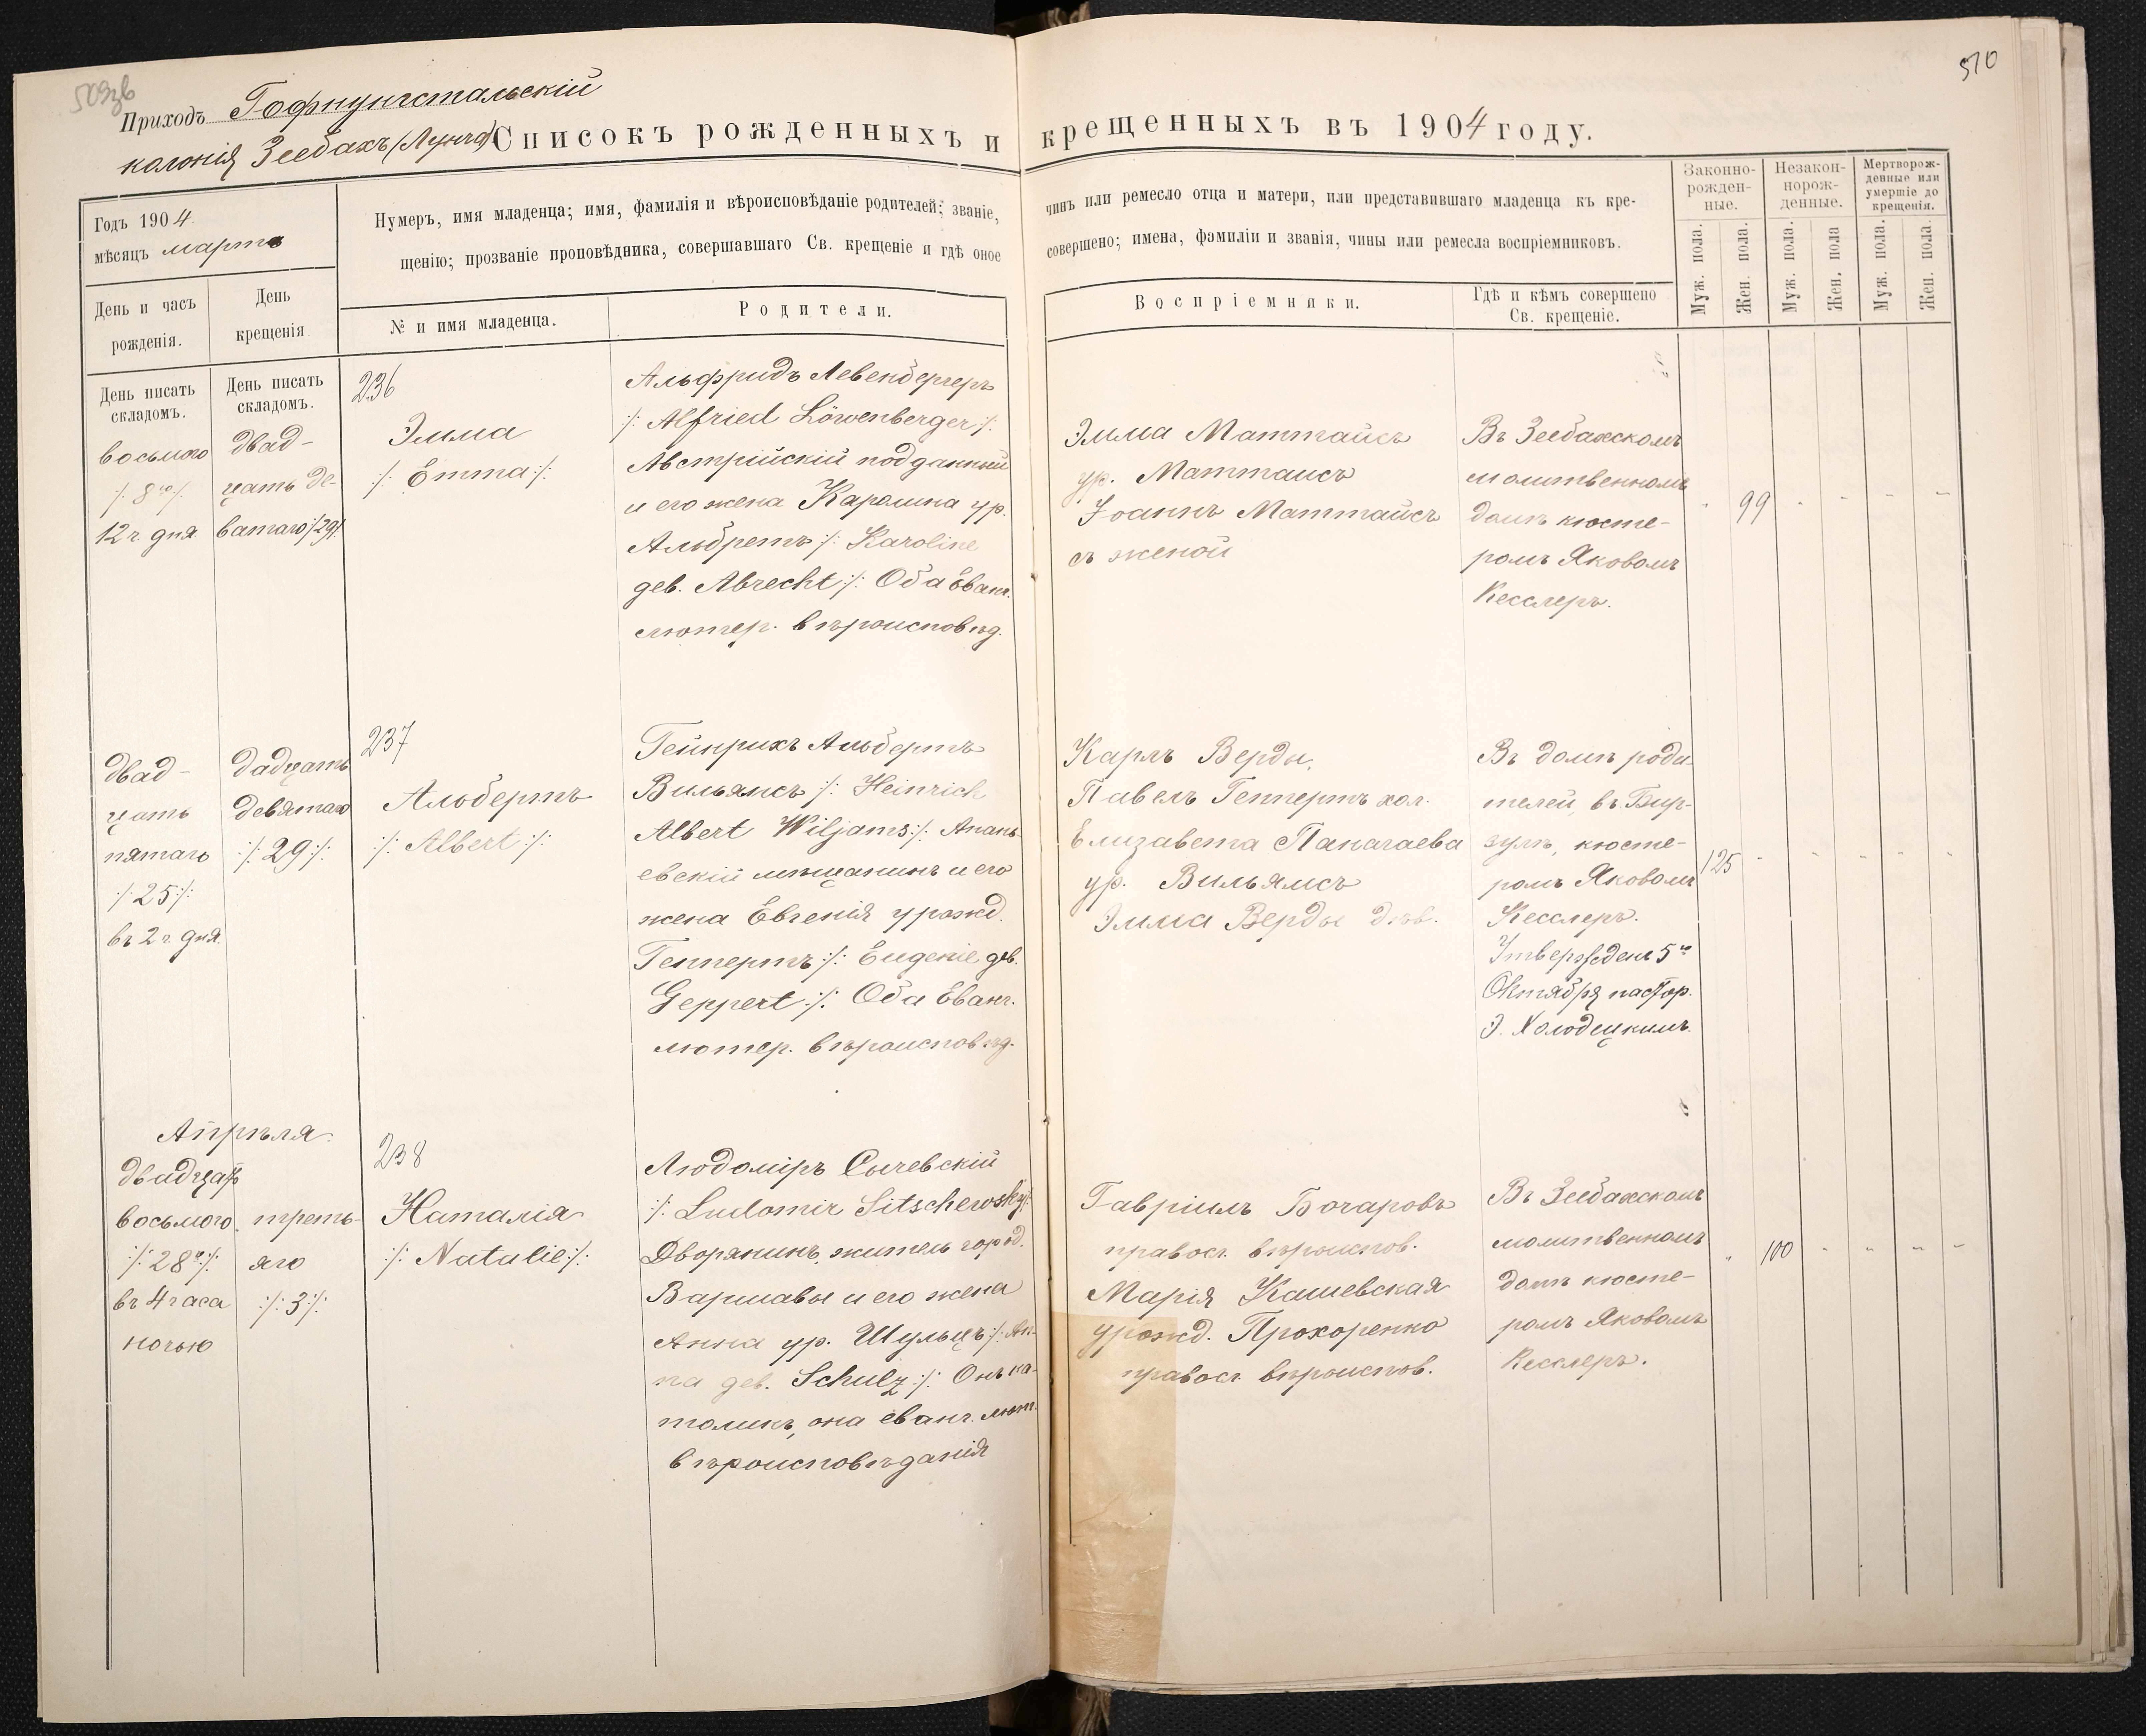 509зв
510
Приходъ Гофнунгстальскій
колонія Зеебахъ (Лунга)
Списокъ рожденныхъ и крещенныхъ въ 1904 году.
Годъ 1904.
мѣсяцъ марта
День и часъ
рожденія.
День
крещенія
Нумеръ, имя младенца; имя, фамилія и вѣроисповѣданіе родителей; званіе,
щенію; прозваніе проповѣдника, совершавшаго Св. крещеніе и гдѣ оное
№ и имя младенца.
Родители.
чинъ или ремесло отца и матери, или представившаго младенца къ кре-
совершено; имена, фэмиліи и званія, чины или ремесла воспріемниковъ.
Воспріемники.
Гдѣ и кѣмъ совершено
Св. крещеніе.
Законно-
рожден-
ные.
Незакон-
норож-
денные.
Мертворож-
денные или
умершіе до
крещенія.
Муж. пола.
Жен. пола.
Муж. пола.
Жен. пола
Муж. пола.
Жен. пола.
День писать
складомъ.
восьмого
/: 8го /:
12 ч. дня
День писать
складомъ.
двад-
цать де-
вятаго /:29/:
236
Эмма
/: Emma :/:
Альфридъ Левенбергеръ
/: Alfried Löwenberger /:
Австрійскій подданный
и его жена Каролина ур.
Альбретъ /: Karoline
дев. Abrecht :/: Оба Еванг.
лютер. вѣроисповѣд.
Эмма Маттайсъ
ур. Маттаисъ
Іоаннъ Маттайсъ
съ женой
Въ Зеебахскомъ
молитвенномъ
домѣ кюсте-
ромъ Яковомъ
Кесслеръ.
" 99 - - - -
двад-
цать
пятаго
/: 25 /:
въ 2 ч. дня.
дадцать
девятаго
:/: 29 :/:
237
Альбертъ
:/: Albert :/:
Гейнрихъ Альбертъ
Вильямсъ /: Heinrich
Albert Wiljams :/: Анань-
евскій мѣщанинъ и его
жена Евгенія урожд.
Геппертъ :/: Eugenie дев.
Geppert :/: Оба Еванг.
лютер. вѣроисповѣд.
Карлъ Верды,
Павелъ Геппертъ хол.
Елизавета Панагаева
ур. Вильямсъ
Эмма Верды дѣв.
Въ домѣ роди-
телей, въ Бир-
зулѣ, кюсте-
ромъ Яковомъ
Кесслеръ.
Утвержденъ 5го
Октября пастор.
Э. Холодецкимъ.
125 - - - - -
Апрѣля.
двадцать
восьмого.
/: 28го :/:
въ 4 часа
ночью
треть-
яго
:/: 3 :/:
238
Наталія
:/: Natalie :/:
Людоміръ Сычевскій
/: Ludomir Sitschewsky /:
Дворянинъ, житель город.
Варшавы и его жена
Анна ур. Шульцъ :/: Ан-
на дев. Schulz :/: Онъ ка-
толикъ, она еванг. лют.
вѣроисповѣданія
Гавріилъ Бочаровъ
правосл. вѣроиспов.
Марія Кашевская
урожд. Прохоренко
правосл. вѣроиспов.
Въ Зеебахскомъ
молитвенномъ
домѣ кюсте-
ромъ Яковомъ
Кесслеръ.
" 100 - - - -